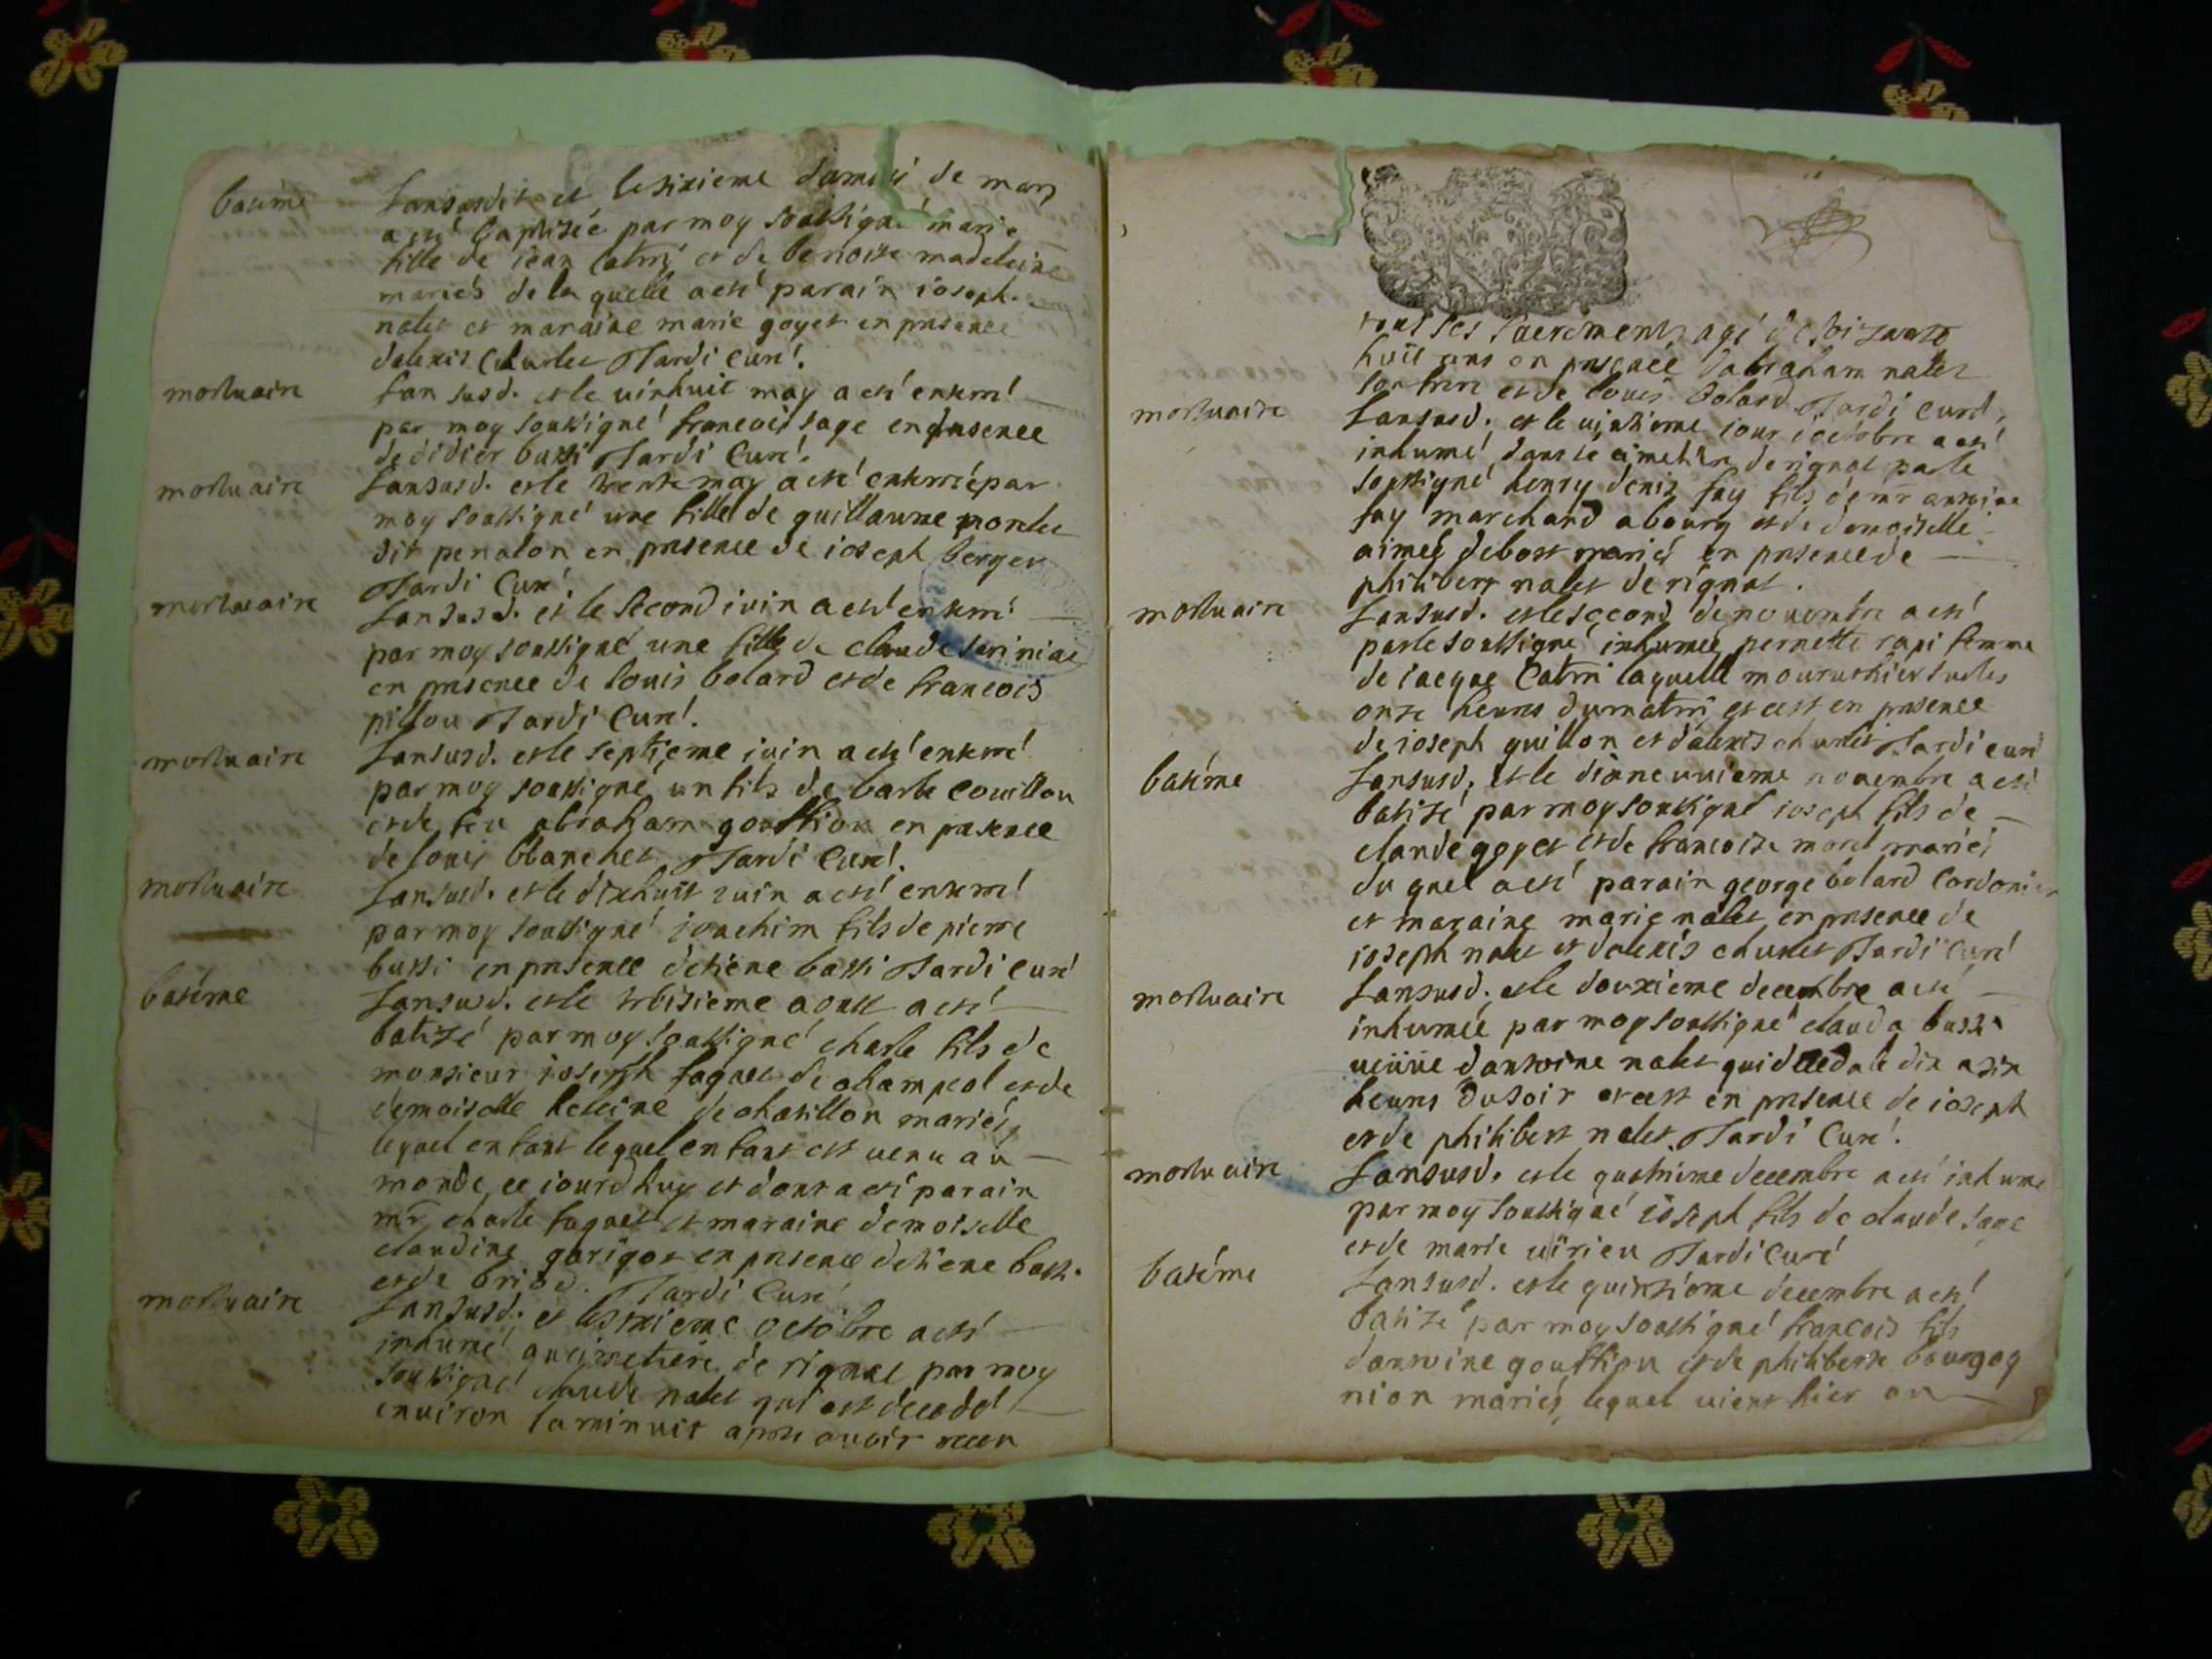 batême
Lansusdit et lesixieme du mois de mars
a esté baptisée par moy soussigné marie
fille de iean Catrin et de benoite madeleine
mariés de la quelle a esté parain ioseph
nalet et maraine marie goyet en presence
dalexis Churlet Tardi Curé.
mortuaire
Lan susd. et le vinhuit may a esté enterré
par moy soussigné francois sage en presence
de didier bussi Tardi Curé.
mortuaire
Lansusd. et le trente may a esté enterrée par
moy soussigné une fille de guillaume
dit penalon en presence de ioseph berger
Tardi Curé
mortuaire
Lansusd. et le second iuin a esté enterré
par moy soussigné une fille de claude
en presence de louis bolard et de francois
pillou Tardi Curé.
mortuaire
Lansusd. et le septieme iuin a esté enterré
par moy soussigné un fils de barbe Couillou
et de feu abraham gouttion en presence
de louis blanchet Tardi Curé.
mortuaire
Lansusd. et le dixhuit iuin a esté enterré
par moy soussigné ioachim fils de pierre
bussi en presence detiene bassi Tardi Curé
batême
Lansusd. et le troisieme aoust a esté
batizé par moy soussigné charle fils de
monsieur ioseph faguet de champcol et de
demoiselle heleine de chatillon mariés,
lequel enfant lequel enfant est venu au
monde ce iourdhuy et dont a esté parain
mr charle faguet et maraine demoiselle
claudine garigot en presence detiene bassi
et de briod. Tardi Curé
mortuaire
Lansusd. et le sixieme octobre a esté
inhumé au cimetiere de rignat par moy
soussigné claude nalet qui est decedé
environ la minuit apres avoir receu
tout ses sacrements agé de soizante
huit ans en presence dabraham nalet
son frere et de louis bolard Tardi Curé,
mortuaire
Lansusd. et le vintieme iour doctobre a esté
inhumé dans le cimetiere de rignat par le
soussigné henry denis fay fils de mr antoine
fay marchand a bourg et de demoiselle
aimeé debost mariés en presence de
philibert nalet de rignat.
mortuaire
Lansusd. et le second de novembre a esté
par le soussigné inhumeé pernette rapi femme
de iacque Catrin laquelle mourut hier sur les
onze heures du matin et cest en presence
de ioseph guillon et dalexis churlet Tardi curé
batême
Lansusd. et le dixneuvieme novembre a esté
batizé par moy soussigné ioseph fils de
claude goyet et de francoise morel mariés
du quel a esté parain george bolard Cordonier
et maraine marie nalet en presence de
ioseph nalet et dalexis churlet Tardi Curé
mortuaire
Lansusd. et le douxieme decembre a esté
inhumée par moy soussigné clauda bussi
veuve dantoine nalet qui deceda le dix a six
heures du soir et cest en presence de ioseph
et de philibert nalet Tardi Curé.
mortuaire
Lansusd. et le quatrieme decembre a esté inhumé
par moy soussigné ioseph fils de claude sage
et de marie virieu Tardi Curé
batême
Lansusd. et le quinzieme decembre a esté
batizé par moy soussigné francois fils
dantoine gouttion et de philiberte bourgog
nion mariés, lequel vient hier au